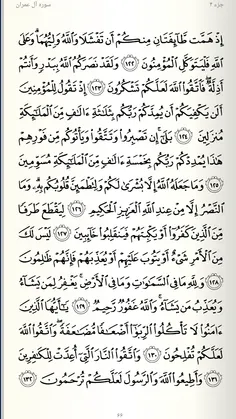 جزء ۴ سورة آل عمران
إِذْ هَمَّت طَّآئِفَتَانِ مِنكُمْ أَن تَفْشَلَا وَٱللَّهُ وَلِيُّهُمَا وَعَلَى
ٱللَّهِ فَلْيَتَوَكَّلِ ٱلْمُؤْمِنُونَ ١٢٢ وَلَقَدْ نَصَرَكُمُ ٱللَّهُ بِبَدْرٍ وَأَنتُمْ
أَذِلَّةٌ فَٱتَّقُوا۟ ٱللَّهَ لَعَلَّكُمْ تَشْكُرُونَ ١٢٣ إِذْ تَقُولُ لِلْمُؤْمِنِينَ
أَلَن يَكْفِيَكُمْ أَن يُمِدَّكُمْ رَبُّكُم بِثَلَٰثَةِ ءَالَٰفٍ مِّنَ ٱلْمَلَٰٓئِكَةِ
مُنزَلِينَ ١٢٤ بَلَىٰٓ إِن تَصْبِرُوا۟ وَتَتَّقُوا۟ وَيَأْتُوكُم مِّن فَوْرِهِمْ
هَٰذَا يُمْدِدْكُمْ رَبُّكُم بِخَمْسَةِ ءَالَٰفٍ مِّنَ ٱلْمَلَٰٓئِكَةِ مُسَوِّمِينَ
١٢٥ وَمَا جَعَلَهُ ٱللَّهُ إِلَّا بُشْرَىٰ لَكُمْ وَلِتَطْمَئِنَّ قُلُوبُكُم بِهِۦ وَمَا
ٱلنَّصْرُ إِلَّا مِنْ عِندِ ٱللَّهِ ٱلْعَزِيزِ ٱلْحَكِيمِ ١٢٦ لِيَقْطَعَ طَرَفًا
مِّنَ ٱلَّذِينَ كَفَرُوٓا۟ أَوْ يَكْبِتَهُمْ فَيَنقَلِبُوا۟ خَآئِبِينَ ١٢٧ لَيْسَ لَكَ
مِنَ ٱلْأَمْرِ شَىْءٌ أَوْ يَتُوبَ عَلَيْهِمْ أَوْ يُعَذِّبَهُمْ فَإِنَّهُمْ ظَٰلِمُونَ
١٢٨ وَلِلَّهِ مَا فِى ٱلسَّمَٰوَٰتِ وَمَا فِى ٱلْأَرْضِ يَغْفِرُ لِمَن يَشَآءُ
وَيُعَذِّبُ مَن يَشَآءُ وَٱللَّهُ غَفُورٌ رَّحِيمٌ ١٢٩ يَٰٓأَيُّهَا ٱلَّذِينَ
ءَامَنُوا۟ لَا تَأْكُلُوا۟ ٱلرِّبَوٰٓا۟ أَضْعَٰفًا مُّضَٰعَفَةً وَٱتَّقُوا۟ ٱللَّهَ
لَعَلَّكُمْ تُفْلِحُونَ ١٣٠ وَٱتَّقُوا۟ ٱلنَّارَ ٱلَّتِىٓ أُعِدَّتْ لِلْكَٰفِرِينَ
١٣١ وَأَطِيعُوا۟ ٱللَّهَ وَٱلرَّسُولَ لَعَلَّكُمْ تُرْحَمُونَ ١٣٢
۶۶